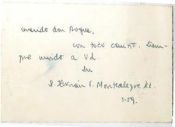 Querido don Roque,
con todo cariño. Siem-
pre unido a Vd.
su
Montealegre